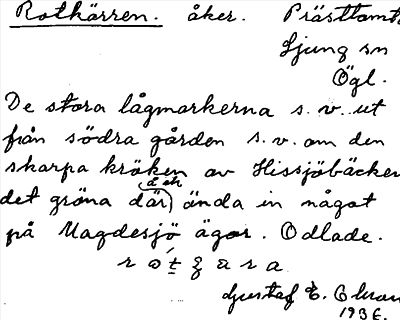 Rotkärren. åker. Prästtomt
Ljung sn
Ögl.
De stora lågmarkerna s.v. ut
från södra gården s.v. om den
skarpa kröken av Hissjöbäcken
det gröna där) ända in något
på Magdesjö ägor. Odlade.
Gustaf E.
1936.